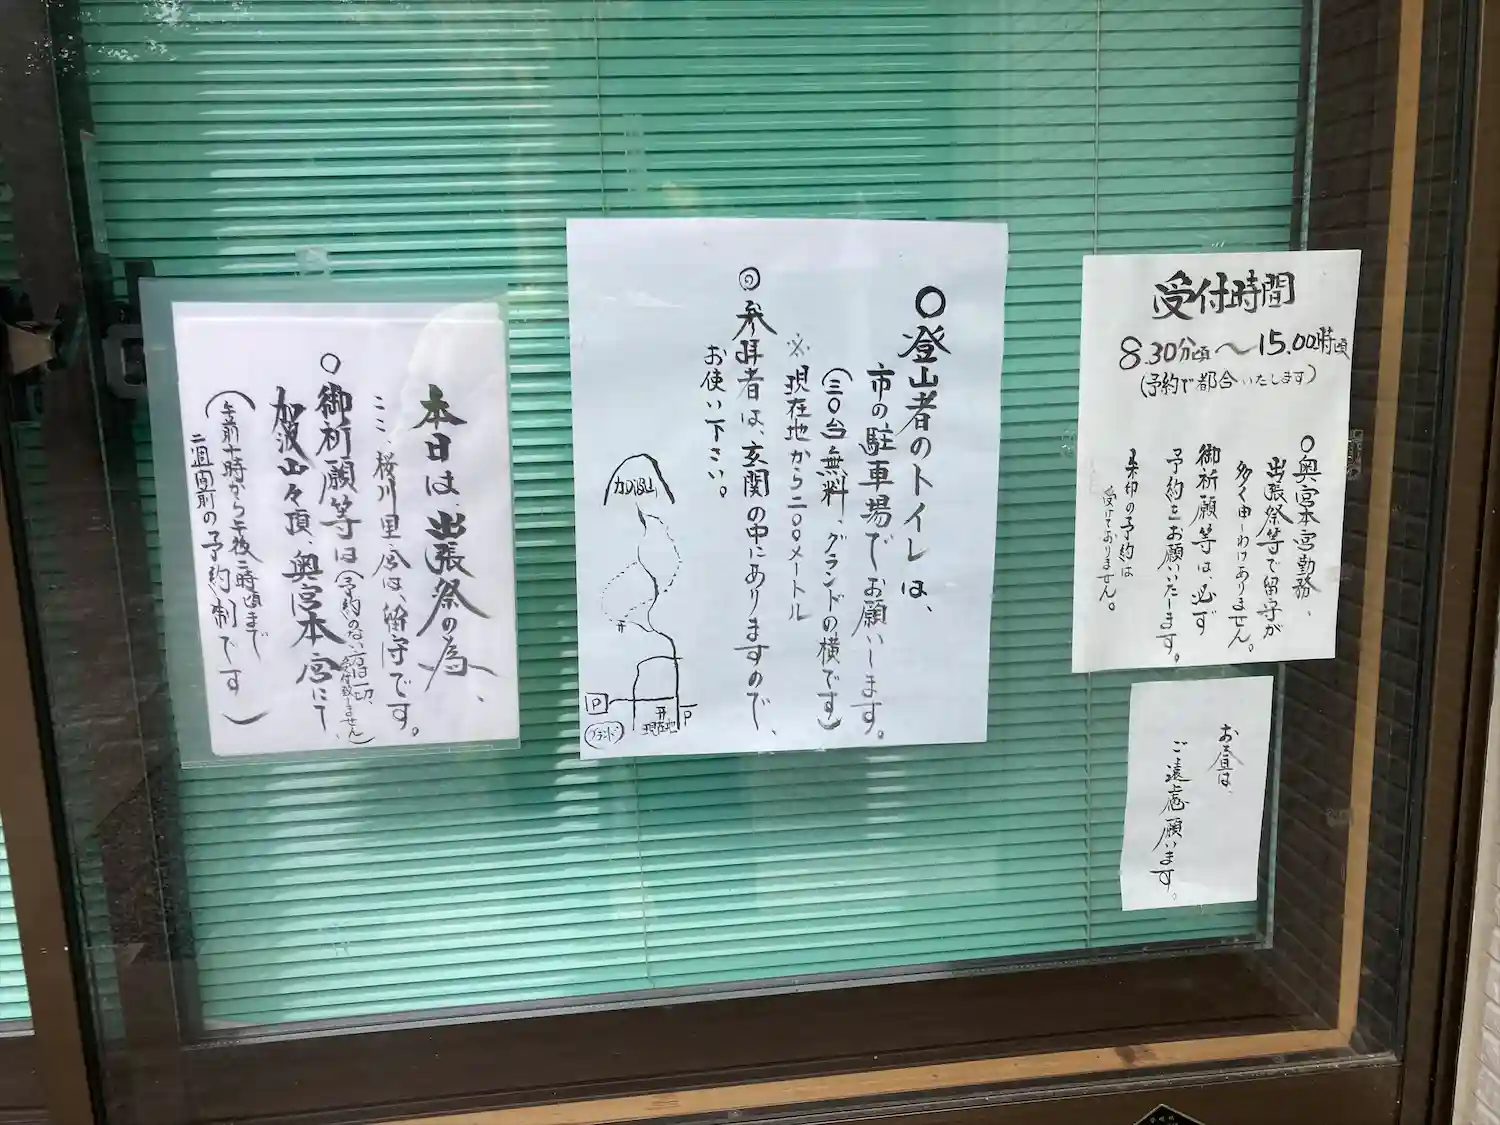 受付時間
8.30分頃〜15.00時頃
(予約で都合いたします)
○奥宮本宮勤務、
出張祭等で留守が
多く申しわけありません。
御祈願等は必ず
予約をお願いいたします。
朱印の予約は
受けておりません。
お昼は、
ご遠慮願います。
○登山者のトイレは、
市の駐車場でお願いします。
(三〇台無料、グランドの横です)
※現在地から二〇〇メートル
◎参拝者は、玄関の中にありますので、
お使い下さい。
加波山
P
グランド
現在地
P
本日は、出張祭の為、
ここ、桜川里宮は、留守です。
○御祈願等は(予約のない方は一切、
受付致しません)
加波山々頂、奥宮本宮にて
(午前十時から午後二時頃まで
二週間前の予約制です)